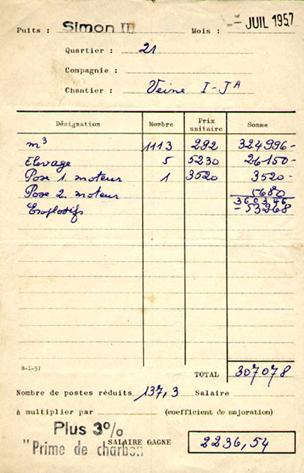 Puits : Simon II Mois : JUIL 1957
Quartier : 21
Compagnie :
Chantier : Veine I-J^A
Désignation Nombre Prix unitaire Somme
m³ 1113 292 324996-
Elevage 5 5230 26150-
Pose 1. moteur 1 3520 3520-
Pose 2. moteur 5680
360346
Explosifs -53268
8-1-57
TOTAL 307078
Nombre de postes réduits 137,3 Salaire
à multiplier par (coefficient de majoration)
Plus 3%
SALAIRE GAGNE 2236,54
"Prime de charbon